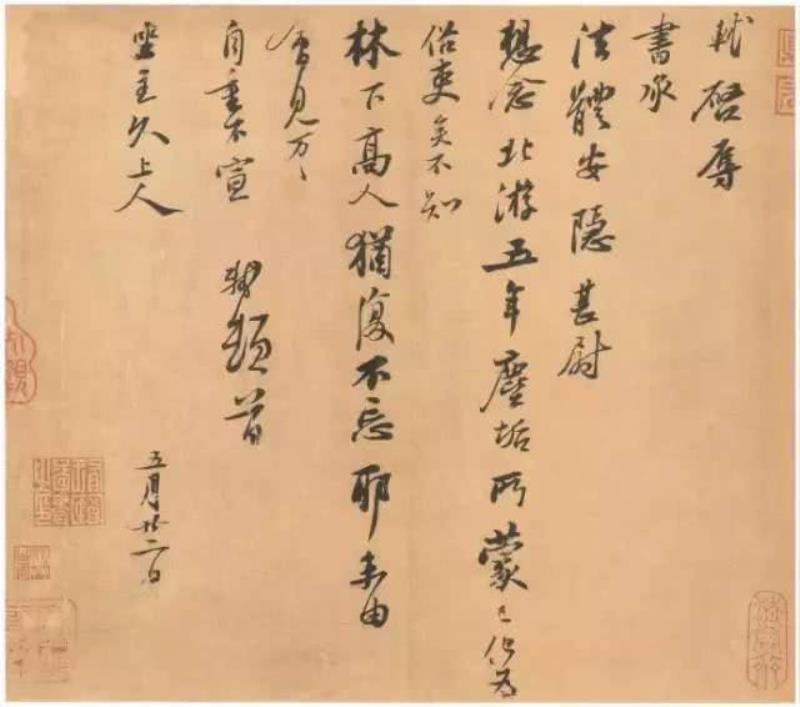 軾啓辱
書承
法體安隱甚慰
想念北游五年塵垢所蒙已化爲
俗吏矣不知
林下高人猶復不忘耶未由
會見万〻
自重不宣 軾頓首
坐主久上人
五月廿二日